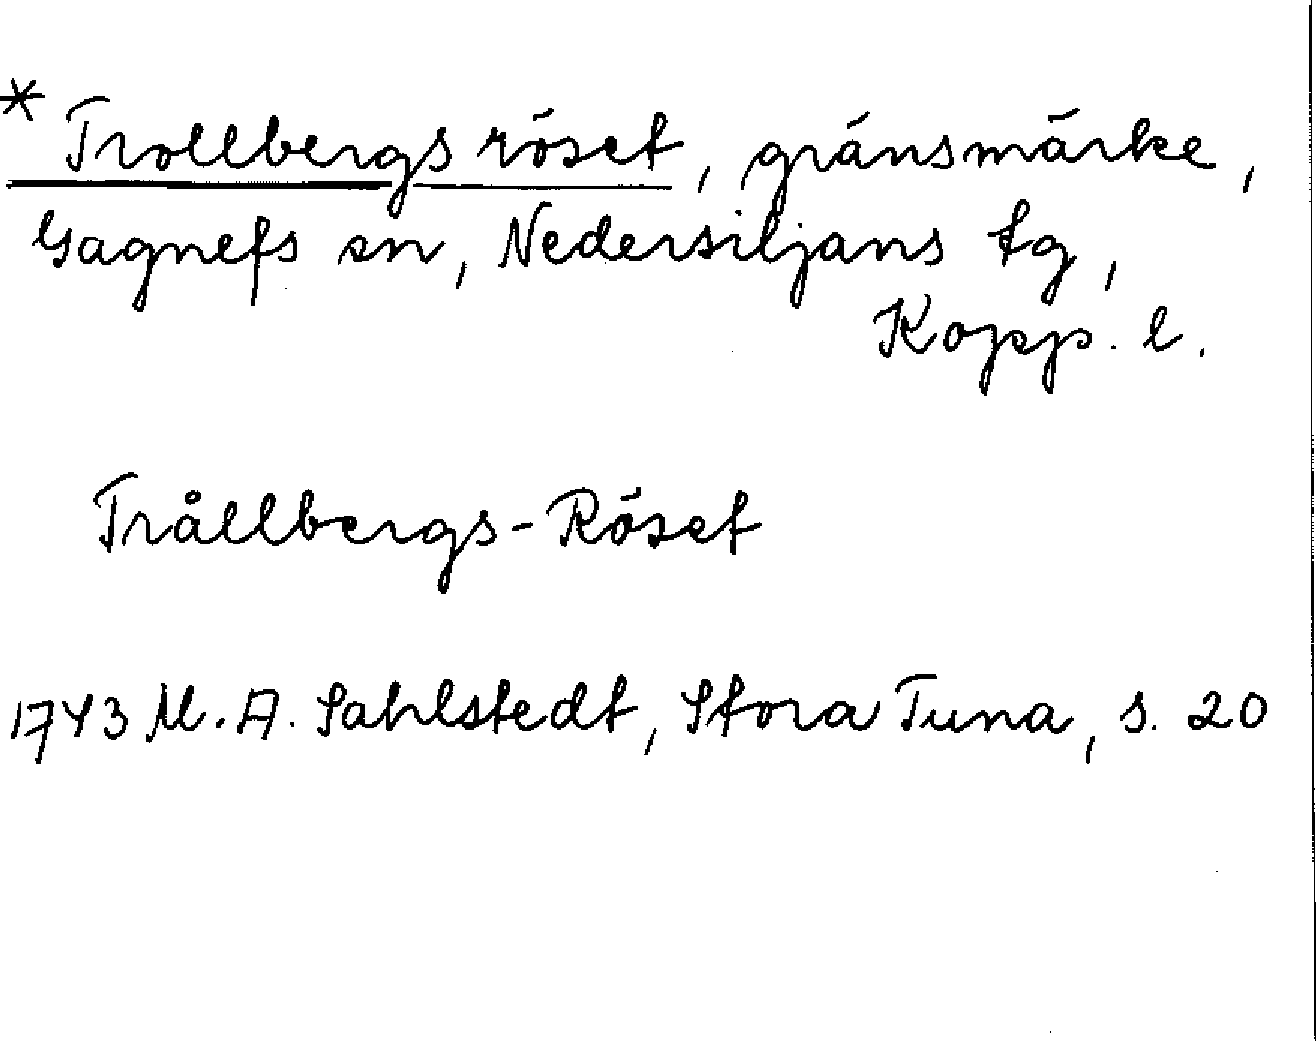 * Trollbergs röset, gränsmärke,
Gagnefs sn, Nedersiljans tg,
Kopp. l.
Trållbergs-Röset
1743 M. A. Sahlstedt, Stora Tuna, s. 20